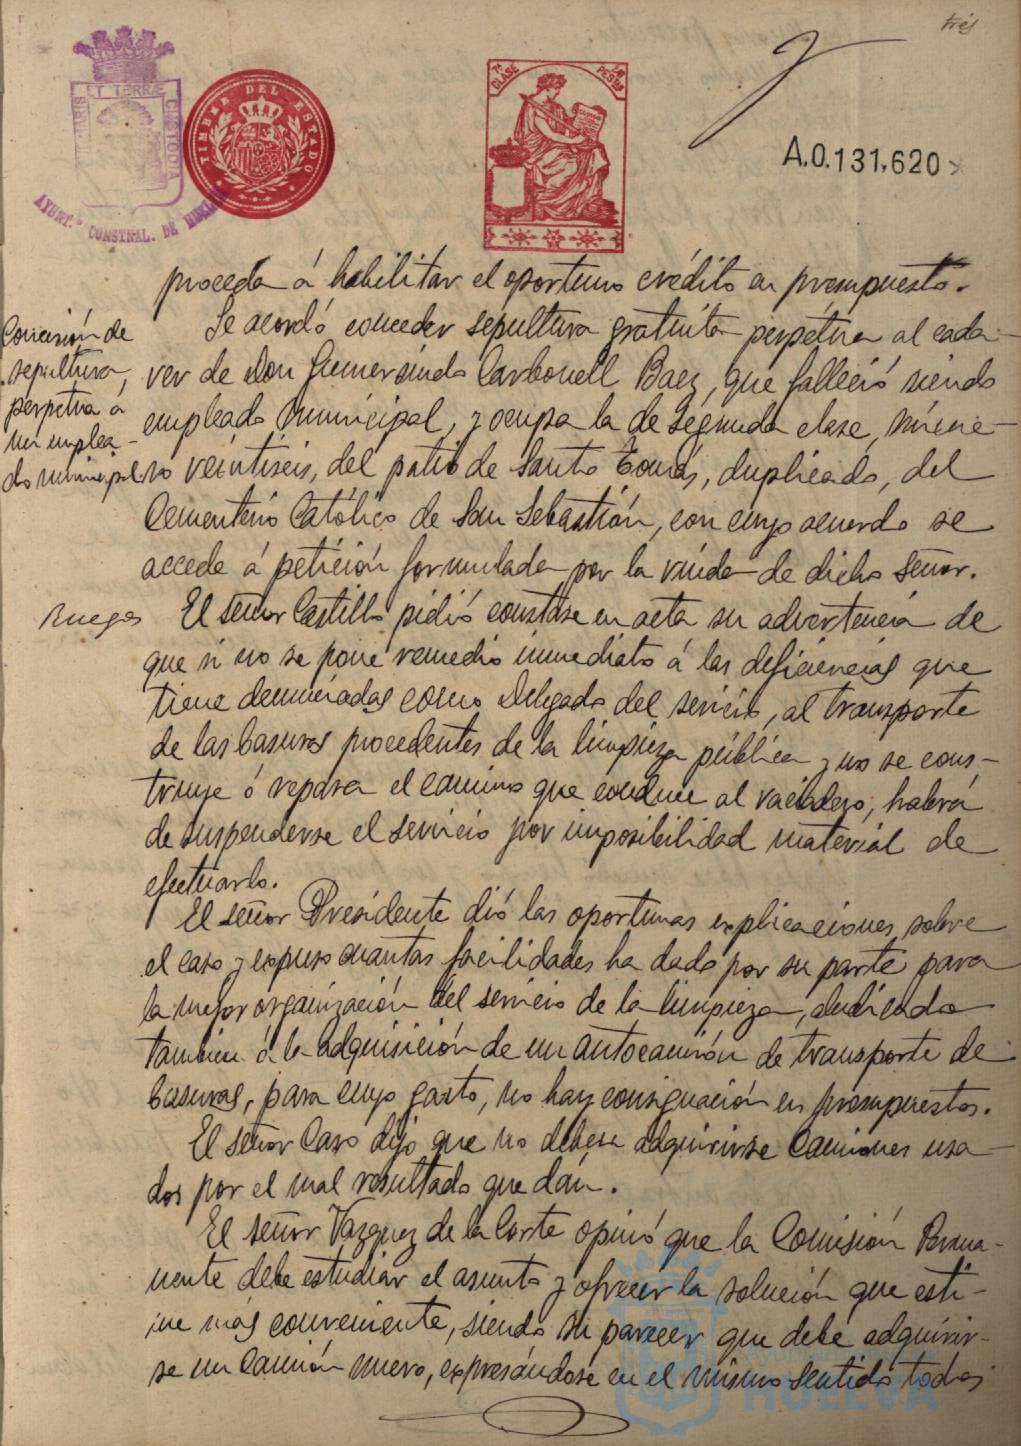 tres
PORTUS MARIS ET TERRÆ CUSTODIA
AYUNT.º CONSTNAL. DE HUELVA
TIMBRE DEL ESTADO
7ª CLASE
PESETAS
A.0.131,620
proceda á habilitar el oportuno crédito en presupuesto.
Concesión de
sepultura,
perpetua á
un emplea-
do municipal
Se acordó conceder sepultura gratuita perpétua al cadá-
ver de Don Gumersindo Carbonell Baez, que falleció siendo
empleado municipal, y ocupa la de segunda clase, núme-
ro veintiseis, del patio de Santo Tomás, duplicado, del
Cementerio Católico de San Sebastián, con cuyo acuerdo se
accede á petición formulada por la viuda de dicho señor.
Ruegos
El señor Castillo pidió constase en acta su advertencia de
que si no se pone remedio inmediato á las deficiencias que
tiene denunciadas como Delegado del servicio, al transporte
de las basuras procedentes de la limpieza pública y no se cons-
truye ó repara el camino que conduce al vaciadero, habrá
de suspenderse el servicio por imposibilidad material de
efectuarlo.
El señor Presidente dió las oportunas explicaciones, sobre
el caso y expuso cuantas facilidades ha dado por su parte para
la mejor organización del servicio de la limpieza, aludiendo
tambien á la adquisición de un autocamión de transporte de
basuras, para cuyo gasto, no hay consignación en presupuestos.
El señor Caso dijo que no deben adquirirse camiones usa-
dos por el mal resultado que dán.
El señor Vazquez de la Corte opinó que la Comisión Perma-
nente debe estudiar el asunto y ofrecer la solución que esti-
me más conveniente, siendo su parecer que debe adquirir-
se un camión nuevo, expresándose en el mismo sentido todos
HUELVA